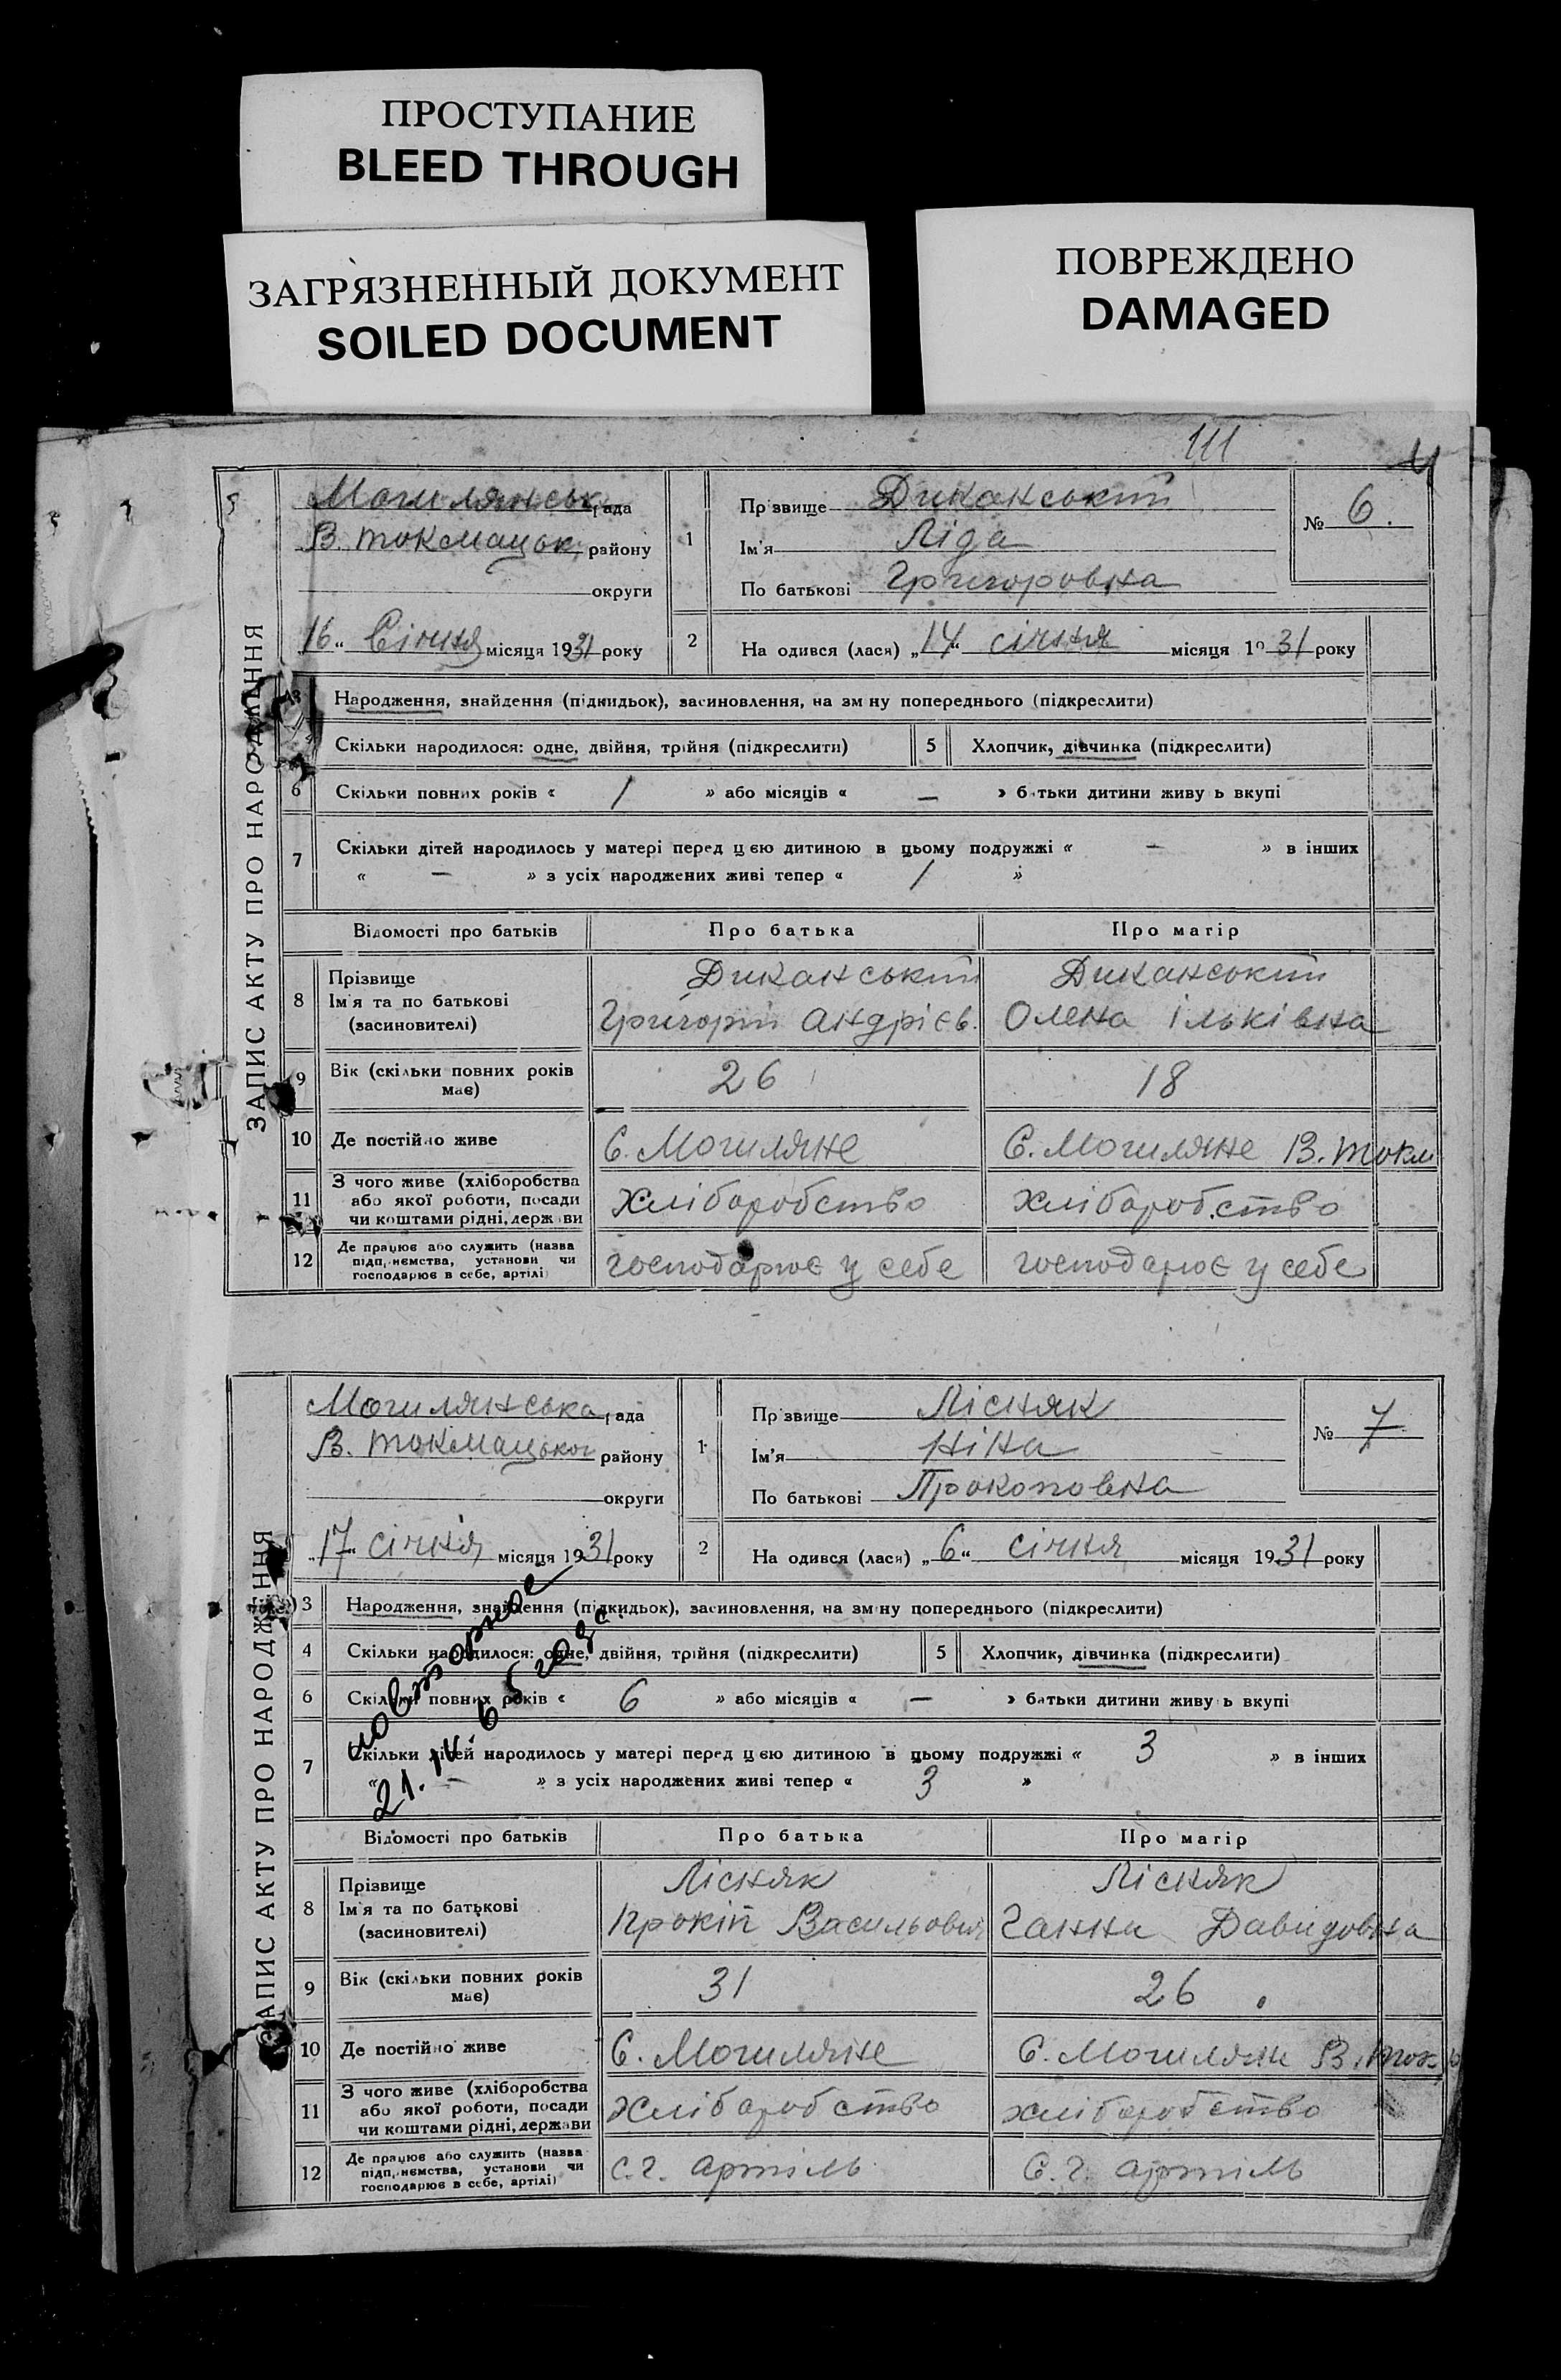 ПРОСТУПАНИЕ
BLEED THROUGH
ЗАГРЯЗНЕННЫЙ ДОКУМЕНТ
SOILED DOCUMENT
ПОВРЕЖДЕНО
DAMAGED
111
ЗАПИС АКТУ ПРО НАРОДЖЕННЯ
Могилянськ рада
В. Токмацьк району
округи
16 " Січня місяця 1931 року
1 Прізвище Диканський
Ім'я Ліда
По батькові Григоровна
№ 6.
2 На одився (лася) „ 14 " січня місяця 19 31 року
Народження, знайдення (підкидьок), засиновлення, на зм ну попереднього (підкреслити)
Скільки народилося: одне, двійня, трійня (підкреслити) 5 Хлопчик, дівчинка (підкреслити)
6 Скільки повних років « 1 » або місяців « — » батьки дитини живу ь вкупі
7 Скільки дітей народилось у матері перед цією дитиною в цьому подружжі « — » в інших
« — » з усіх народжених живі тепер « 1 »
Відомості про батьків Про батька Про матір
8 Прізвище Диканський Диканський
Ім'я та по батькові Григорій Андрієв. Олена Ільківна
(засиновителі)
9 Вік (скільки повних років має) 26 18
10 Де постійно живе С. Могиляне С. Могиляне В. Токм
11 З чого живе (хліборобства або якої роботи, посади чи коштами рідні, держави Хліборобство Хліборобство
12 Де працює або служить (назва підприємства, установи чи господарює в себе, артілі) господарює у себе господарює у себе
ЗАПИС АКТУ ПРО НАРОДЖЕННЯ
Могилянська рада
В. Токмацьког району
округи
„ 17 " січня місяця 1931 року
1 Прізвище Лісняк
Ім'я Ніна
По батькові Прокоповна
№ 7
2 На одився (лася) „ 6 " січня місяця 1931 року
3 Народження, знайдення (підкидьок), засиновлення, на зм ну попереднього (підкреслити)
4 Скільки народилося: одне, двійня, трійня (підкреслити) 5 Хлопчик, дівчинка (підкреслити)
6 Скільки повних років « 6 » або місяців « — » батьки дитини живу ь вкупі
7 Скільки дітей народилось у матері перед цією дитиною в цьому подружжі « 3 » в інших
« — » з усіх народжених живі тепер « 3 »
повторное
21. IV. 65 года
Відомості про батьків Про батька Про матір
8 Прізвище Лісняк Лісняк
Ім'я та по батькові Прокіп Васильович Ганна Давидовна
(засиновителі)
9 Вік (скільки повних років має) 31 26
10 Де постійно живе С. Могиляне С. Могиляне В. Ток
11 З чого живе (хліборобства або якої роботи, посади чи коштами рідні, держави Хліборобство хліборобство
12 Де працює або служить (назва підприємства, установи чи господарює в себе, артілі) С.г. артіль С.г. артіль